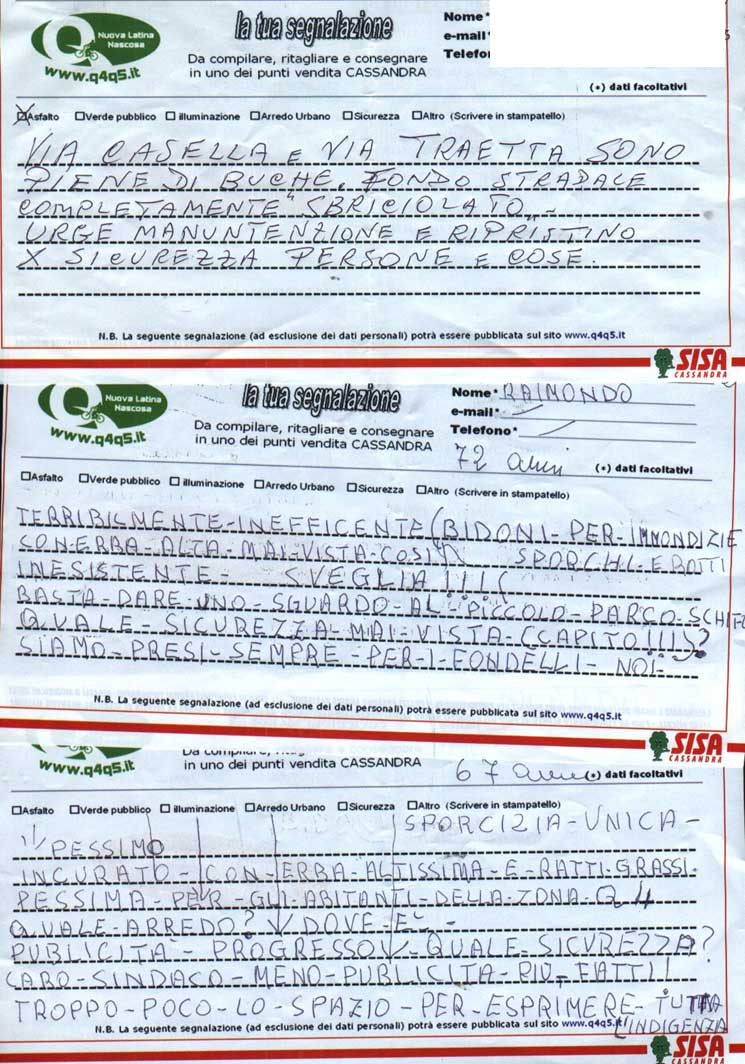 Nuova Latina
Nascosa
www.q4q5.it
la tua segnalazione
Da compilare, ritagliare e consegnare
in uno dei punti vendita CASSANDRA
Nome*
e-mail*
Telefo
(*) dati facoltativi
Asfalto Verde pubblico illuminazione Arredo Urbano Sicurezza Altro (Scrivere in stampatello)
VIA CASELLA e VIA TRAETTA SONO
PIENE DI BUCHE. FONDO STRADALE
COMPLETAMENTE "SBRICIOLATO" -
URGE MANUNTENZIONE E RIPRISTINO
X SICUREZZA PERSONE E COSE.
N.B. La seguente segnalazione (ad esclusione dei dati personali) potrà essere pubblicata sul sito www.q4q5.it
SISA
CASSANDRA
Nuova Latina
Nascosa
www.q4q5.it
la tua segnalazione
Da compilare, ritagliare e consegnare
in uno dei punti vendita CASSANDRA
Nome* RAIMONDO
e-mail*
Telefono*
72 anni (*) dati facoltativi
Asfalto Verde pubblico illuminazione Arredo Urbano Sicurezza Altro (Scrivere in stampatello)
TERRIBILMENTE-INEFFICENTE (BIDONI-PER-IMMONDIZIE
CON-ERBA-ALTA-MAI-VISTA-COSI SPORCHI E RATTI
INESISTENTE- SVEGLIA!!!!
BASTA-DARE-UNO-SGUARDO-AL-"PICCOLO-PARCO-SCHIFO
QUALE-SICUREZZA-MAI-VISTA-(CAPITO!!!)?
SIAMO-PRESI-SEMPRE-PER-I-FONDELLI-NOI-
N.B. La seguente segnalazione (ad esclusione dei dati personali) potrà essere pubblicata sul sito www.q4q5.it
SISA
CASSANDRA
www.q4q5.it
Da compilare, ritag
in uno dei punti vendita CASSANDRA
67 anni (*) dati facoltativi
Asfalto Verde pubblico illuminazione Arredo Urbano Sicurezza Altro (Scrivere in stampatello)
SPORCIZIA-UNICA-
PESSIMO
INCURATO-CON-ERBA-ALTISSIMA-E-RATTI-GRASSI-
PESSIMA-PER-GLI-ABITANTI-DELLA-ZONA-Q4
QUALE-ARREDO? DOVE-E'-
PUBLICITA-PROGRESSO-QUALE-SICUREZZA?
CARO-SINDACO-MENO-PUBLICITA-PIÙ-FATTI!
TROPPO-POCO-LO-SPAZIO-PER-ESPRIMERE-TUTTA
L'INDIGENZA
N.B. La seguente segnalazione (ad esclusione dei dati personali) potrà essere pubblicata sul sito www.q4q5.it
SISA
CASSANDRA